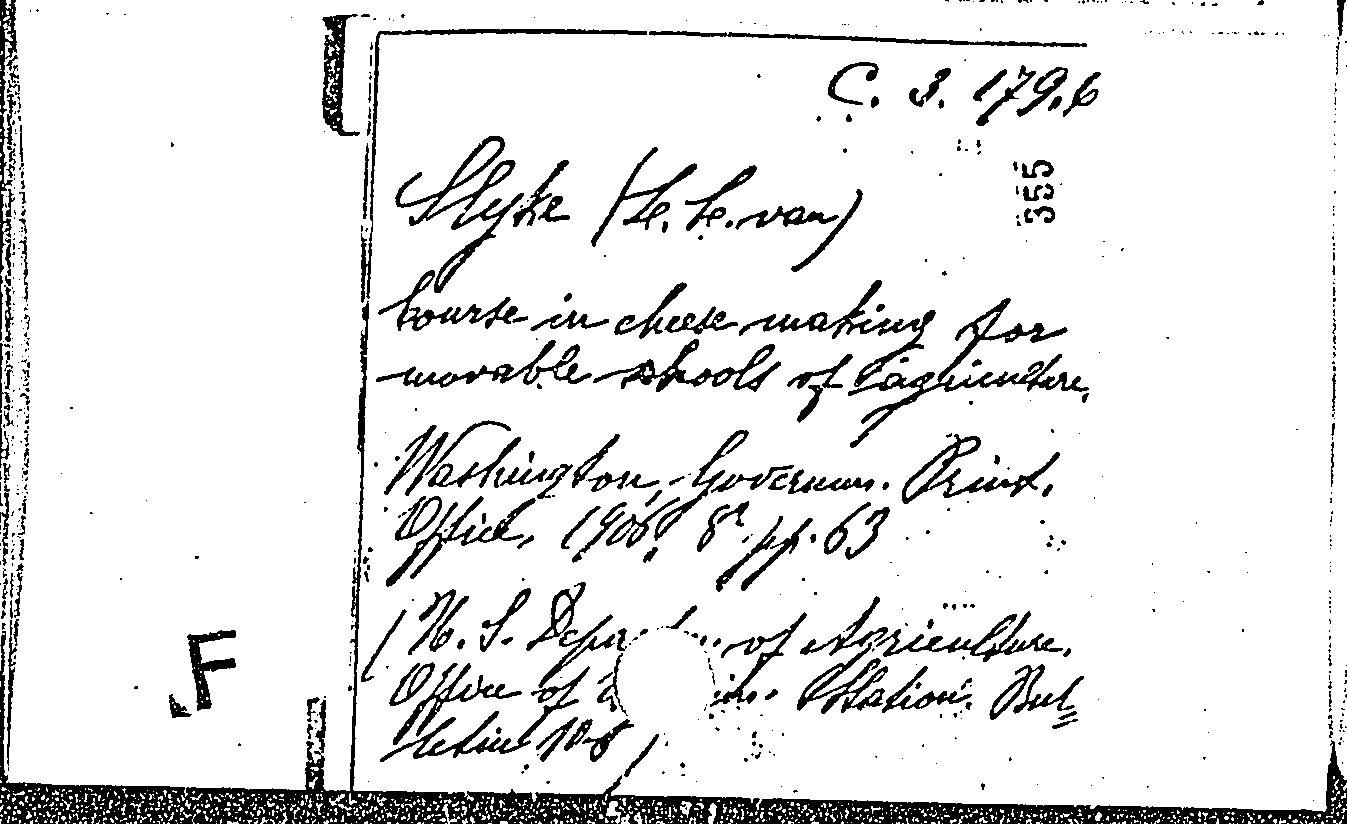 C. 3. 179.6
355
Slyke (L. L. van)
Course in cheese making for
movable schools of agriculture.
Washington, Governm. Print.
Office, 1906. 8° pp. 63
(U. S. of Agriculture.
Office of Station. Bul=
letin
F